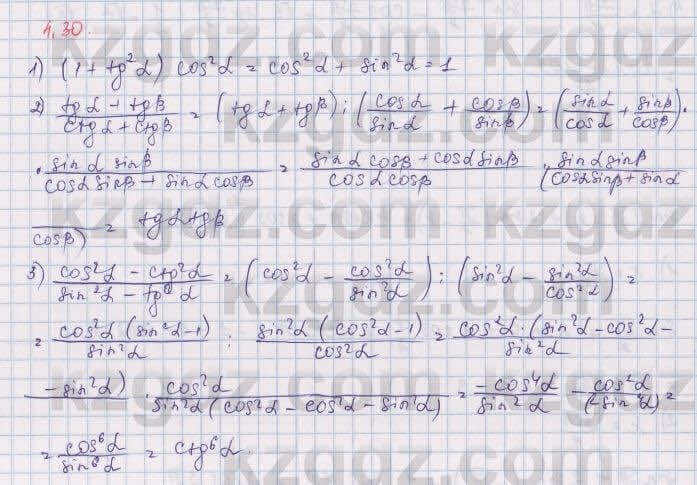 4.30.
1) (1 + tg²α) cos²α = cos²α + sin²α = 1
2) (tgα + tgβ)/(ctgα + ctgβ) = (tgα + tgβ) : (cosα/sinα + cosβ/sinβ) = (sinα/cosα + sinβ/cosβ) ·
· sinα sinβ/(cosα sinβ + sinα cosβ) = (sinα cosβ + cosα sinβ)/(cosα cosβ) · sinα sinβ/(cosα sinβ + sinα
cosβ) = tgα tgβ
3) (cos²α - ctg²α)/(sin²α - tg²α) = (cos²α - cos²α/sin²α) : (sin²α - sin²α/cos²α) =
= cos²α (sin²α - 1)/sin²α : sin²α (cos²α - 1)/cos²α = cos²α · (sin²α - cos²α -
- sin²α)/sin²α · cos²α/(sin²α (cos²α - cos²α - sin²α)) = -cos⁴α/sin²α · cos²α/(-sin⁴α) =
= cos⁶α/sin⁶α = ctg⁶α.
kzgdz.com
kzgdz.com
kzgdz.com
kzgdz.com